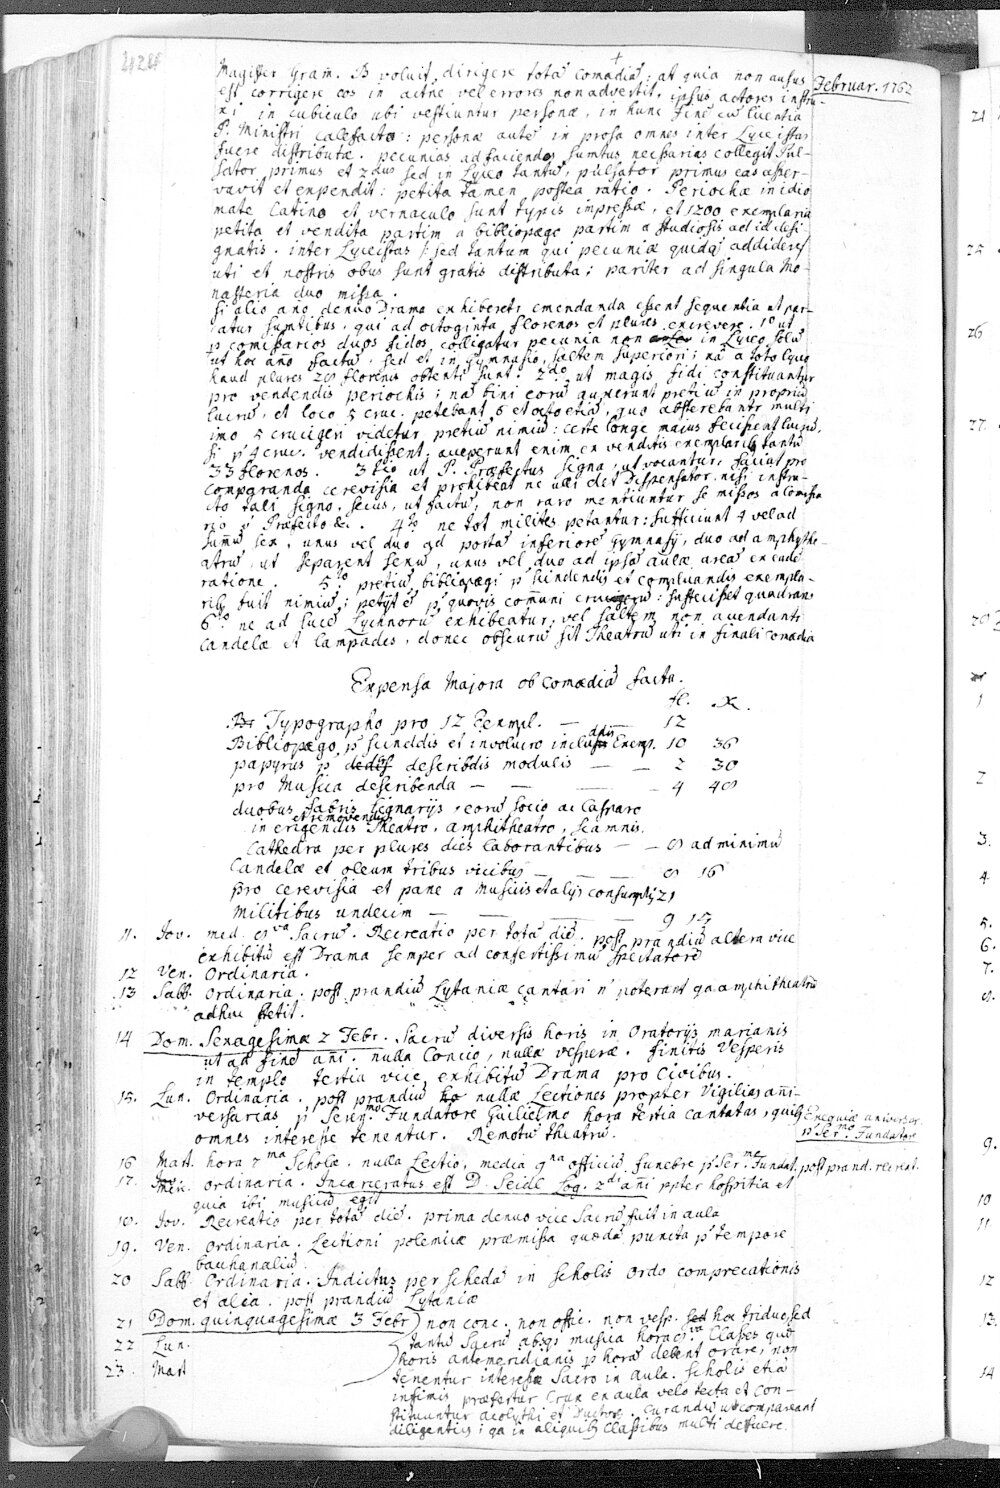 Februar. 1762
Magister Gram. B voluit dirigere totā comœdiā; at quia non ausus
est corrigere eos in actne vel errores non advertit, ipsus actores instru-
xi in cubiculo ubi vestiuntur personæ, in hunc finē cū licentia
P. Ministri calefacto: personæ autē in prosa omnes inter Lyceistas
fuere distributæ. pecunias ad faciendos sumtus necessarias collegit Pul-
sator primus et 2dus sed in Lyceo tantū, pulsator primus eas asser-
vavit et expendit: petita tamen postea ratio. Periochæ in idio
mate latino et vernaculo sunt typis impressæ, et 1200 exemplaria
petita et vendita partim a bibliopægo partim a studiosis ad id desi-
gnatis. inter Lyceistas /: sed tantum qui pecuniæ quidq; addideres/
uti et nostris obus sunt gratis distributa; pariter ad singula Mo-
nasteria duo missa.
Si alio año denuo Drama exhiberetr emendanda essent sequentia ut par-
catur sumtibus, qui ad octoginta florenos et plures excrevere. 1o ut
p comissarios duos fidos, colligatur pecunia non in Lyceo solū
ut hoc año factū, sed et in Gymnasio, saltem superiori; nā a toto lyceo
haud plures 28 florenis obtenti sunt. 2do ut magis fidi constituantur
pro vendendis periochis; nā bini eorū auxerunt pretiū in propriū
lucrū, et loco 5 cruc. petebant 6 et octo etiā, quo absterrebantr multi
imo 5 crucigeri videtur pretiū nimiū: certe longe maius fecissent lucrū,
si p 4 cruc. vendidissent; acceperunt enim ex venditis exemplarib tantū
33 florenos. 3tio ut P. Præfectus signa, ut vocantur, faciat pro
compgranda cerevisia et prohibeat ne ulli det Dispensator, nisi instru-
cto tali signo, secus, ut factū, non raro mentiuntur se missos a comissa
rio P Præfecto &c. 4to ne tot milites petantur: sufficiunt 4 vel ad
sumū sex, unus vel duo ad portā inferiorē Gymnasij, duo ad amphithe-
atrū, ut separent senū, unus vel duo ad ipsā aulæ areā ex eadē
ratione. 5to pretiū bibliopægi p scindendis et compluandis exempla-
rib fuit nimiū; petijt ē p quovis comuni crucigerū: suffecisset quadrans
6to ne ad lucē Lychnorū exhibeatur; vel saltem non accendantr
candelæ et lampades, donec obscurū sit Theatrū uti in finali comœdia
Expensa Majora ob comœdiā facta.
fl. x.
Typographo pro 12 Exempl. — — 12
Bibliopægo p scinddis et involucro inclusis Exemp. 10 36
papyrus p describdis modulis — — 2 30
pro Musica describenda — — — 4 48
duobus fabris lignarijs, eorū socio ac Casparo
in erigendis et removendis Theatro, amphitheatro, scamnis,
Cathedra per plures dies laborantibus — — 8 ad minimū
Candelæ et oleum tribus vicibus — — 8 16
pro cerevisia et pane a Musicis et alijs consumptis 21
Militibus undecim — — — 9 15
11. Jov. med. 8va Sacrū. Recreatio per totā diē. post prandiū altera vice
exhibitū est Drama semper ad confertissimū spectatorē
12 Ven. Ordinaria.
13 Sabb. Ordinaria. post prandiū Lytaniæ cantari n poterant qa amphitheatrū
adhuc stetit.
14 Dom. Sexagesimæ 2 Febr. Sacrū diversis horis in Oratorijs marianis
ut ad finē añi. nulla Concio, nullæ vesperæ. finitis Vesperis
in templo tertia vice exhibitū Drama pro Civibus.
15. Lun. Ordinaria. post prandiū nullæ Lectiones propter Vigilias añi-
versarias p Sermo Fundatore Guilielmo hora tertia cantatas, quib
omnes interesse tenentur. Remotū theatrū.
Exequiæ aniversar.
p Sermo Fundatore
16 Mart. hora 7ma Scholæ. nulla Lectio, media 9na officiū funebre p Sermo Fundat. post prand. recreat.
17. Mer. ordinaria. Incarceratus est D. Seidl Log. 2di añi ppter hospitia et
quia ibi musicū egit
18. Jov. Recreatio per totā diē. prima denuo vice Sacrū fuit in aula
19. Ven. Ordinaria. Lectioni polemicæ præmissa quædā puncta p tempore
bacchanaliū.
20 Sabb. Ordinaria. Indictus per scheda in scholis ordo comprecationis
et alia. post prandiū Lytaniæ
21 Dom. quinquagesimæ 3 Febr. non conc. non offic. non vesp. sed hoc triduo, sed
22 Lun. tantū Sacrū absq; musica hora 8va Classes quo
23. Mart horis antemeridianis p horā debent orare, non
tenentur interesse Sacro in aula. Scholis etiā
infimis præfertur Crux ex aula velo tecta et con-
stituuntur acolythi et ductore. Curandū ut compareant
diligentius; qa in aliquib classibus multi defuere.